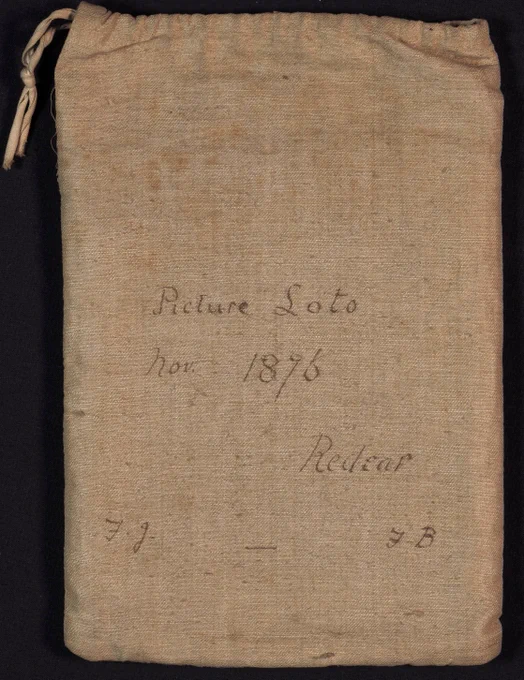 Picture Loto
Nov. 1876
Redcar
F. J. — F. B